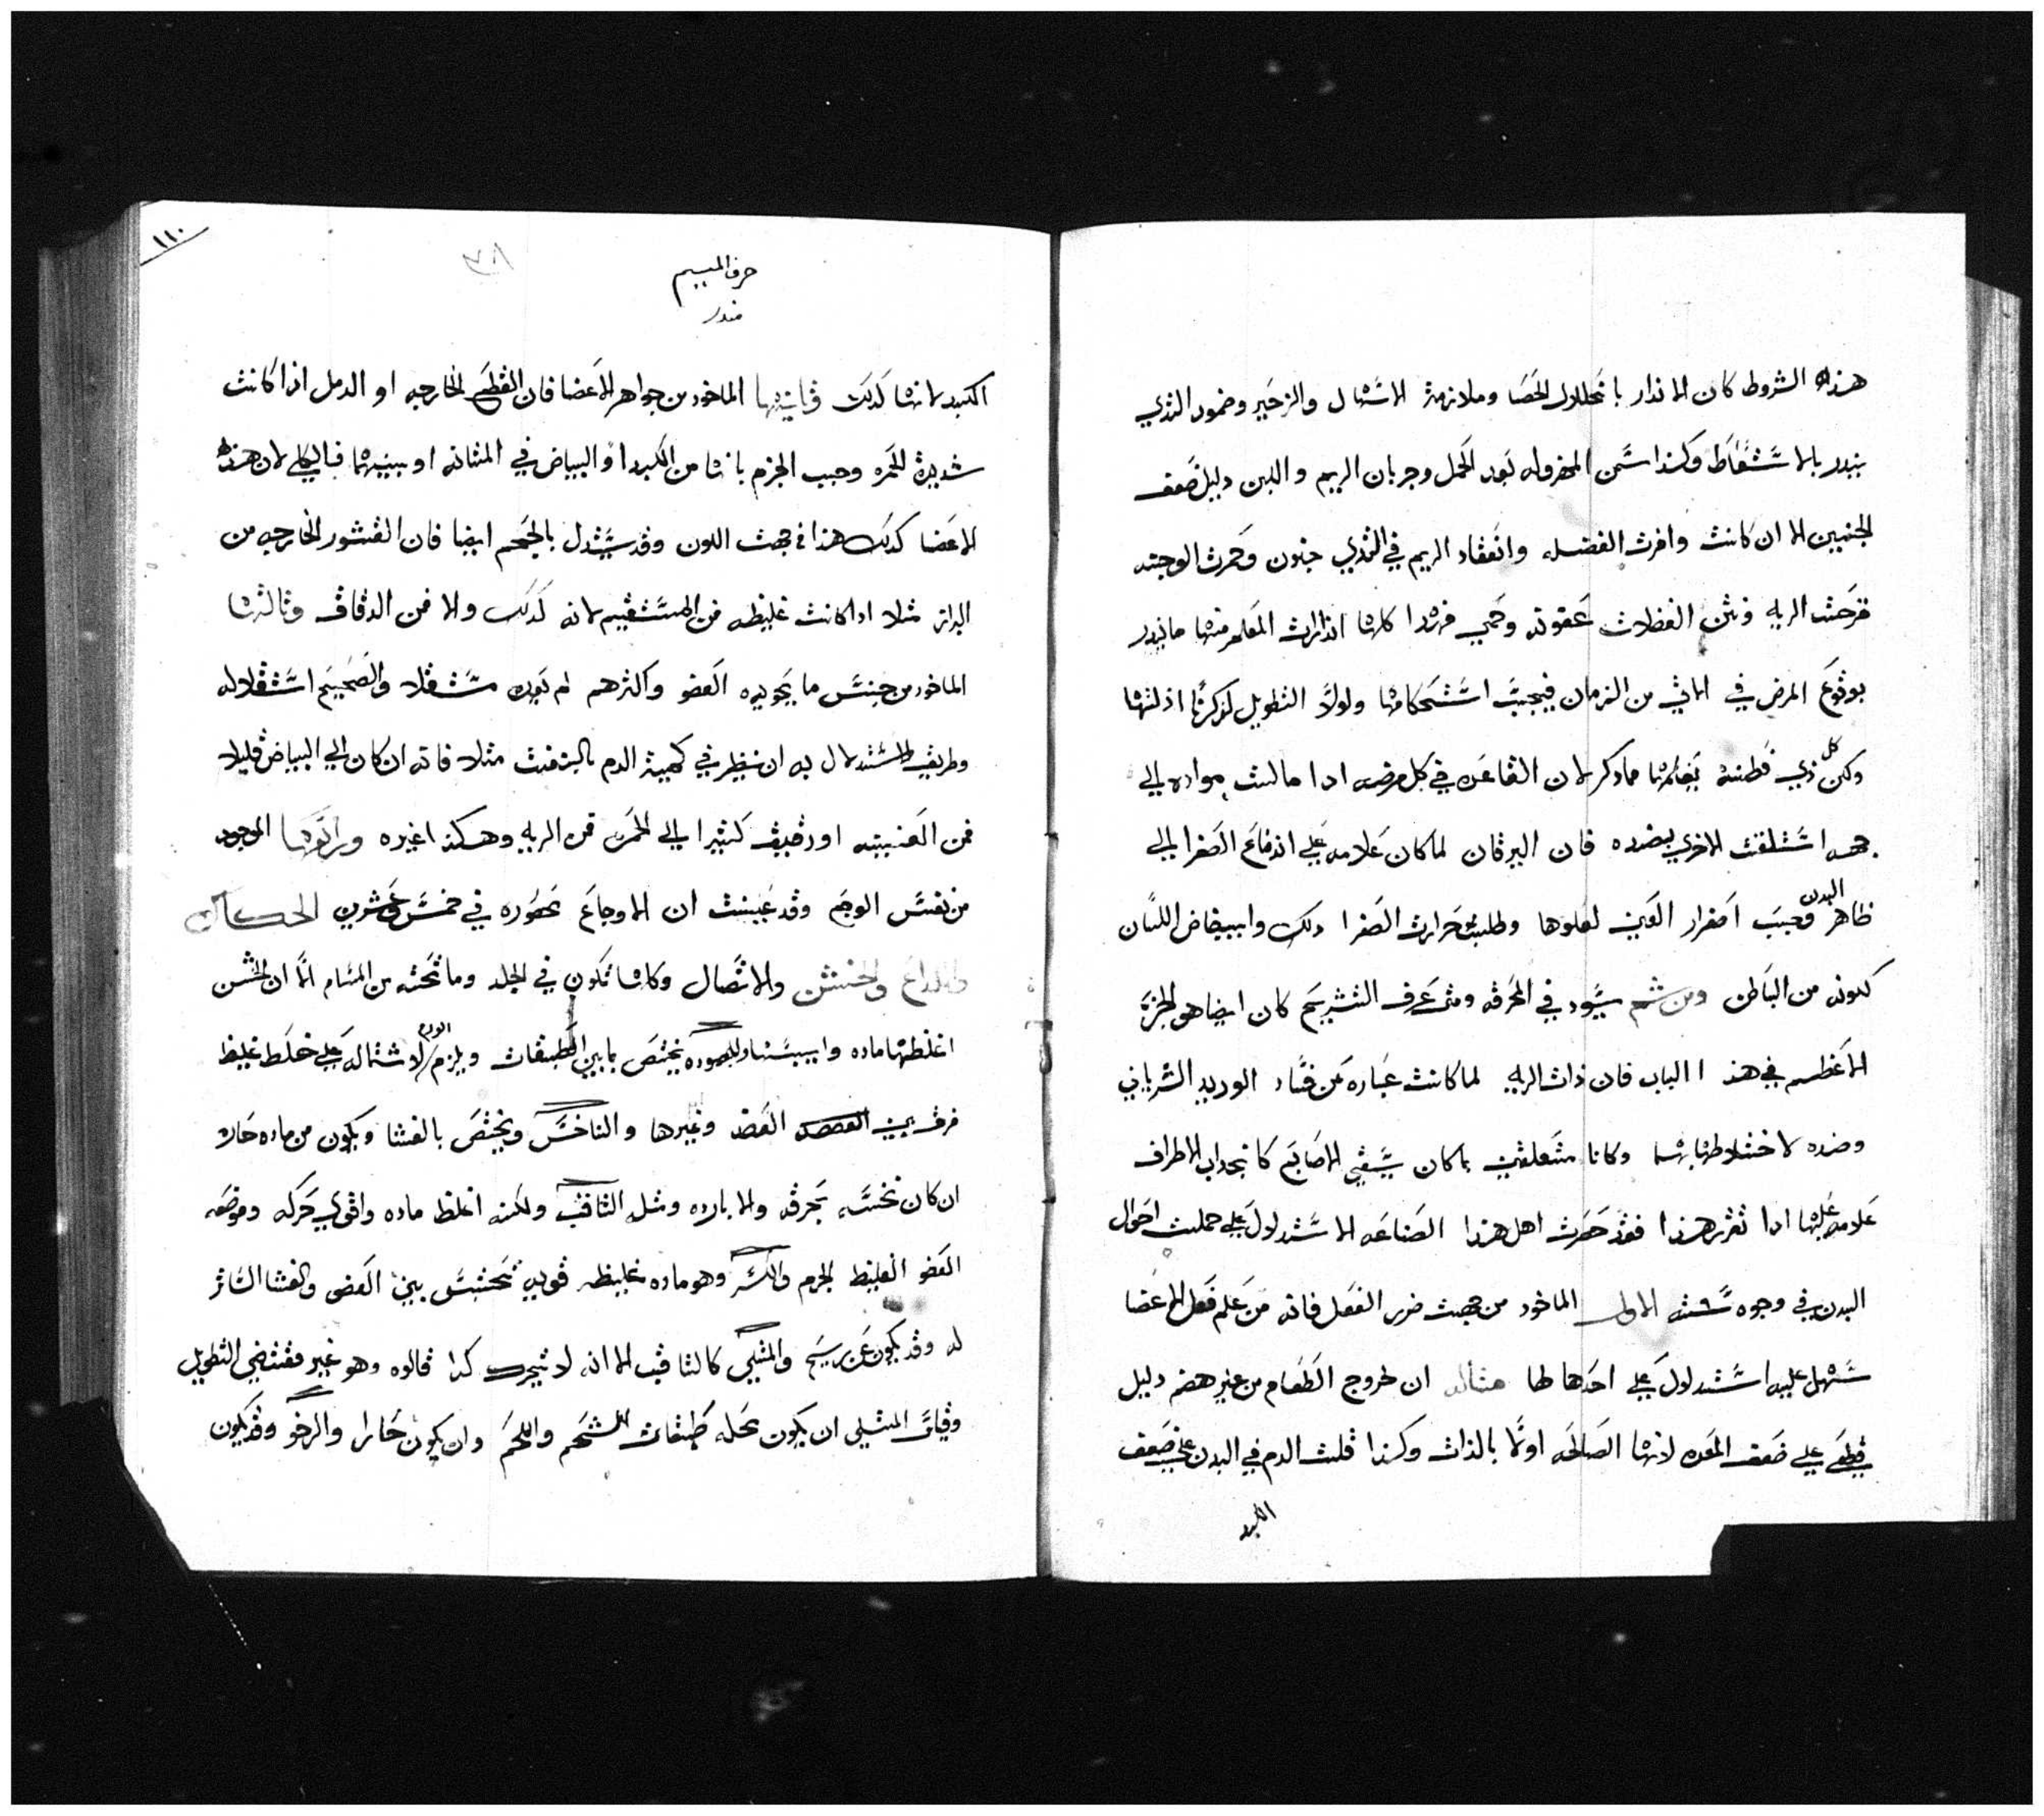 هذه الشروط كان الانذار بانحلال الحصا وملازمة الاسهال والزحير وضمور الثدي
ينذر بالاسقاط وكذا سمن المهزوله بعد الحمل وجريان الريم واللبن دليل ضعف
الجنين الا ان كانت وافرت الفضله وانعقاد الريم في الثدي جنون وحمرت الوجنته
قرحت الريه ونتن الفضلات عفونه وحمي فهذا كلها انذارات المعلم منها ما ينذر
بوقوع المرض في الاتي من الزمان فيجب استحكامها ولولا التطويل لذكرنا اذلتها
ولكن كل ذي فطنة يعلمها مما ذكر لان القاعده في كل مرض اذا مالت مواده الي
جهه استلقت الاخري بضده فان اليرقان لما كان علامه علي اندفاع الصفرا الي
ظاهر البدن وجب اصفرار العين لعلوها وطلبت حرارت الصفرا ذلك وابيضاض اللسان
لكونه من الباطن ومن ثم يسود في المحرقه ومتي عرف التشريح كان ايضا هو الجزء
الاعظم في هذا الباب فان ذات الريه لما كانت عباره عن فساد الوريد الشرياني
وضده لاختلاطهما بها وكانا متعلقين بما كان يسقي الاصابع كانجداب الاطراف
علامه عليها اذا تقرر هذا فقد حررت اهل هذا الصناعه الاستدلال علي جملت احوال
البدن في وجوه سته الاول الماخود من جهت ضرر الفعل فانه من علم فعل الاعضا
سهل عليه استدلال علي احدها لها مثاله ان خروج الطعام من غير هضم دليل
قطعي علي ضعف المعده لانها الصالحه اولا بالذات وكذا قلت الدم في البدن علي ضعف
الكبد
١١٠
حرف الميم
منذر
الكبد لانها كذلك وثانيها الماخود من جواهر الاعضا فان القطع الخارجه او الدمل اذا كانت
شديدة الحمره وجب الجزم بانها من الكبد او البياض في المثانه او بينهما فالكلي لان هذه
الاعضا كذلك هذا في جهت اللون وقد يستدل بالحجم ايضا فان القشور الخارجه من
البراز مثلا اذا كانت غليظه فمن المستقيم لانه كذلك والا فمن الدقاق وثالثها
الماخود من جنس ما يحويه العضو واكثرهم لم يعده مستقلا والصحيح استقلاله
وطريق الاستدلال به ان ينظر في كمية الدم بالنفث مثلا فانه ان كان الي البياض قليلا
فمن القصبته او رقيق كثيرا الي الحمره فمن الريه وهكذا غيره ورابعها الموجود
من نفس الوجع وقد عينت ان الاوجاع محصوره في خمس وعشرين الحكاك
واللداع والخشن والاتصال وكلها تكون في الجلد وما تحته من المسام الا ان الخشن
اغلظها ماده وايبسها والممدد يختص بما بين الطبقات ويلزم الورم لاشتماله علي خلط غليظ
فرق بين العضد وغيرها والناخس ويختص بالغشا ويكون من ماده حاره
ان كان نخسه بحرقه والا بارده ومثله الثاقب ولكنه اغلظ ماده واقوي حركه وموضعه
العضو الغليظ الجرم والمكسر وهو ماده غليظه قويه تحتبس بين العضو والغشا الساتر
له وقد يكون عن ريح والمسلي كالثاقب الا انه لا يتحرك كذا قالوه وهو غير مقتضي التطويل
وقياس المسلي ان يكون محله طبقات الشحم واللحم وان يكون حارا والرخو وقد يكون